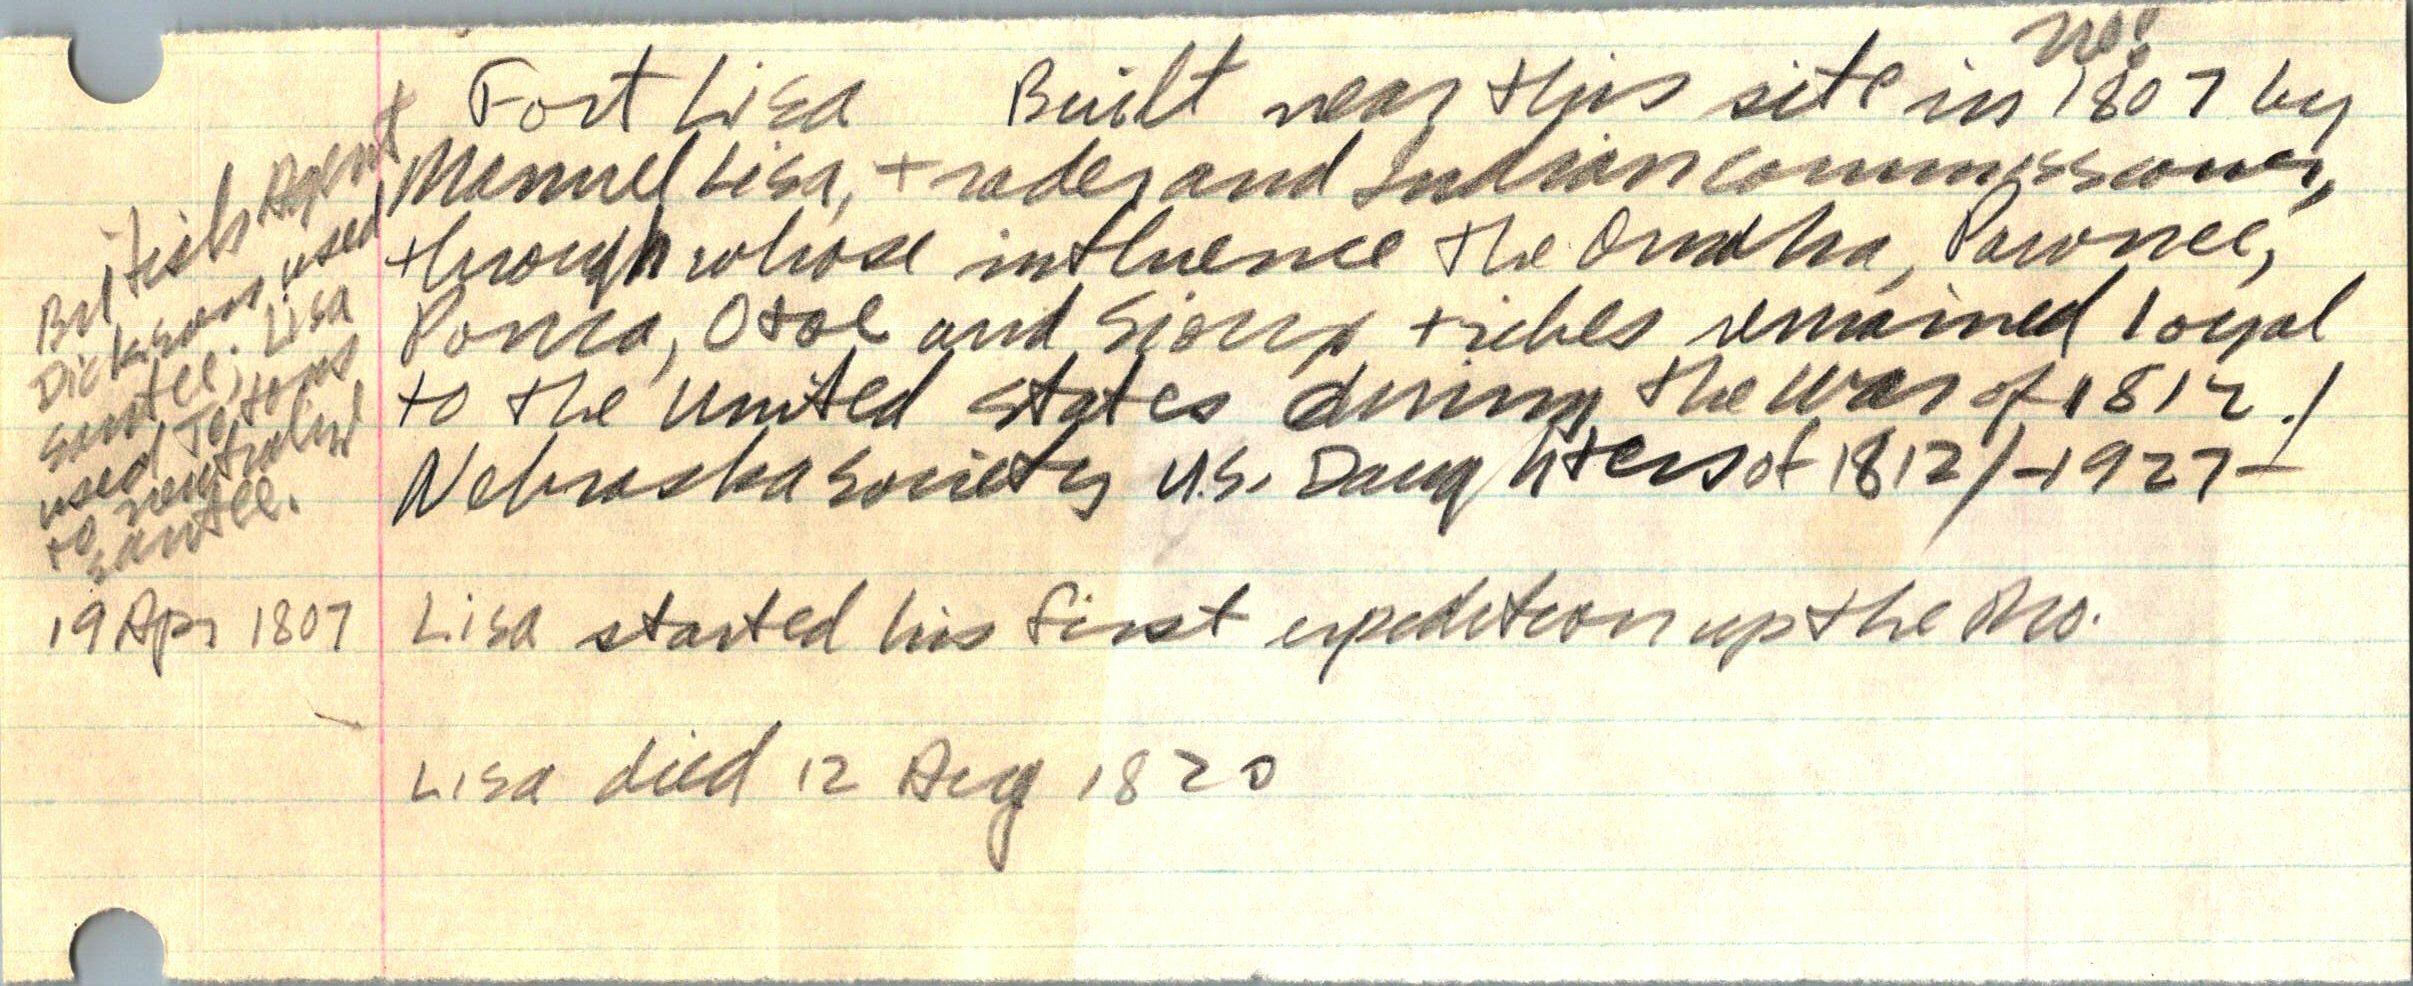 no!
Fort Lisa Built near this site in 1807 by
Manuel Lisa, trader and Indian Commissioner,
through whose influence the Omaha, Pawnee,
Ponca, Otoe and Sioux tribes remained loyal
to the United States during the War of 1812./
Nebraska Society U.S. Daughters of 1812/-1927-
British Agent
Dickson used
Santee; Lisa
used Tetons
to neutralize
Santee.
19 Apr 1807 Lisa started his first expedition up the Mo.
Lisa died 12 Aug 1820